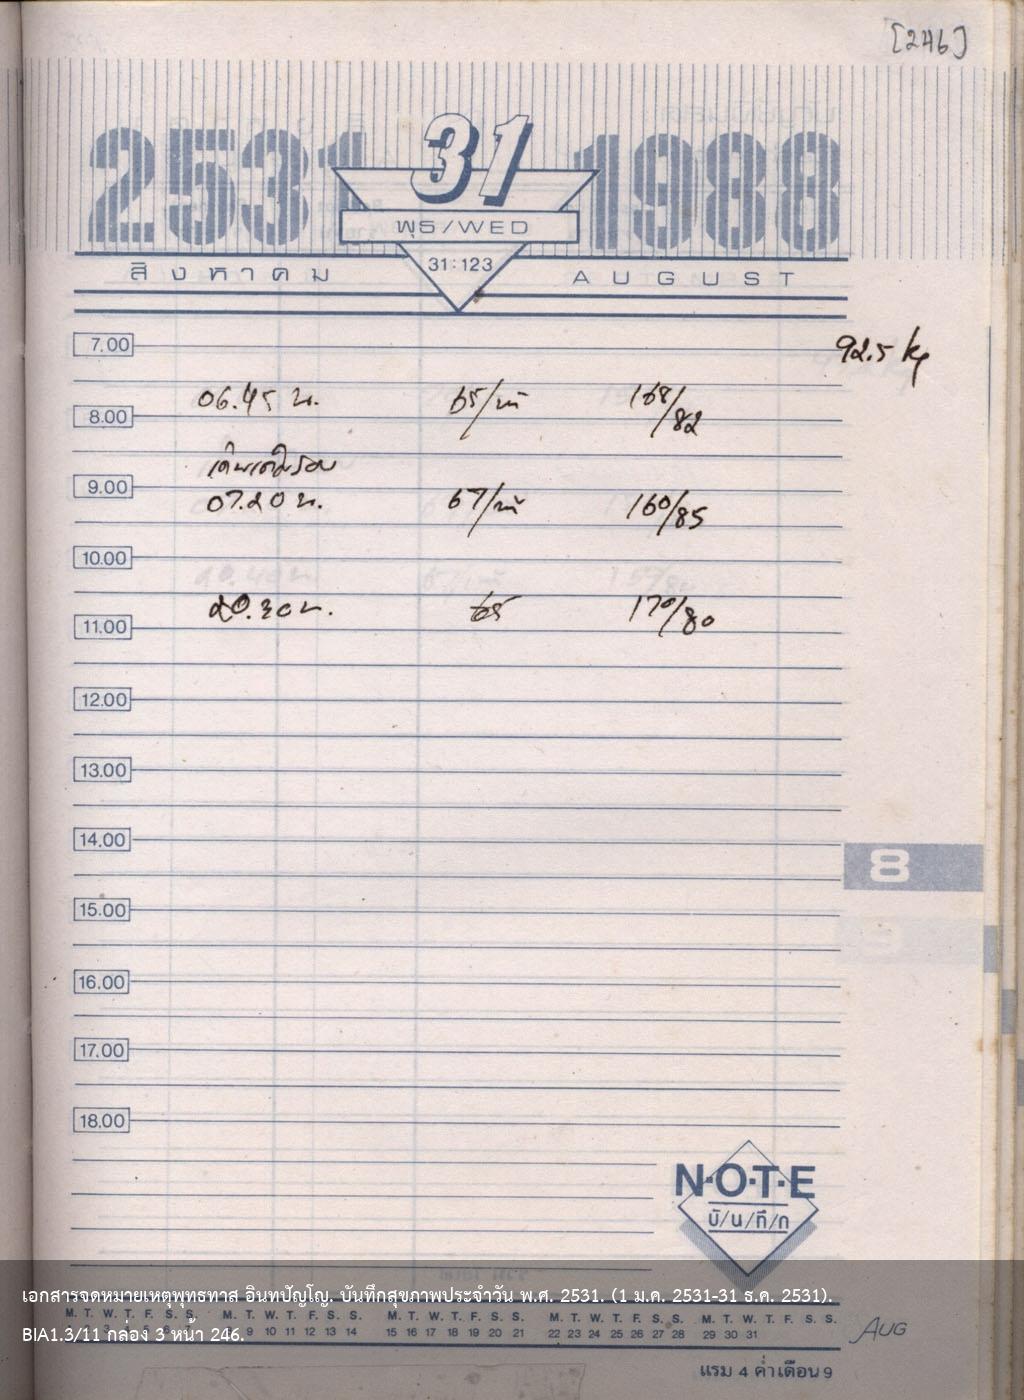 [246]
2531 31 1988
พุธ/WED
31:123
สิงหาคม AUGUST
7.00
92.5 kg
06.45 น. 65/นาที 168/82
8.00
เดินเต็มรอบ
9.00
07.20 น. 67/นาที 160/85
10.00
20.30 น. 65 170/80
11.00
12.00
13.00
14.00
8
15.00
16.00
17.00
18.00
N·O·T·E
บั/น/ทึ/ก
เอกสารจดหมายเหตุพุทธทาส อินทปัญโญ. บันทึกสุขภาพประจำวัน พ.ศ. 2531. (1 ม.ค. 2531-31 ธ.ค. 2531).
M. T. W. T. F. S. S. M. T. W. T. F. S. S. M. T. W. T. F. S. S. M. T. W. T. F. S. S. M. T. W. T. F. S. S.
BIA1.3/11 กล่อง 3 หน้า 246.
9 10 11 12 13 14 15 16 17 18 19 20 21 22 23 24 25 26 27 28 29 30 31
AUG
แรม 4 ค่ำ เดือน 9